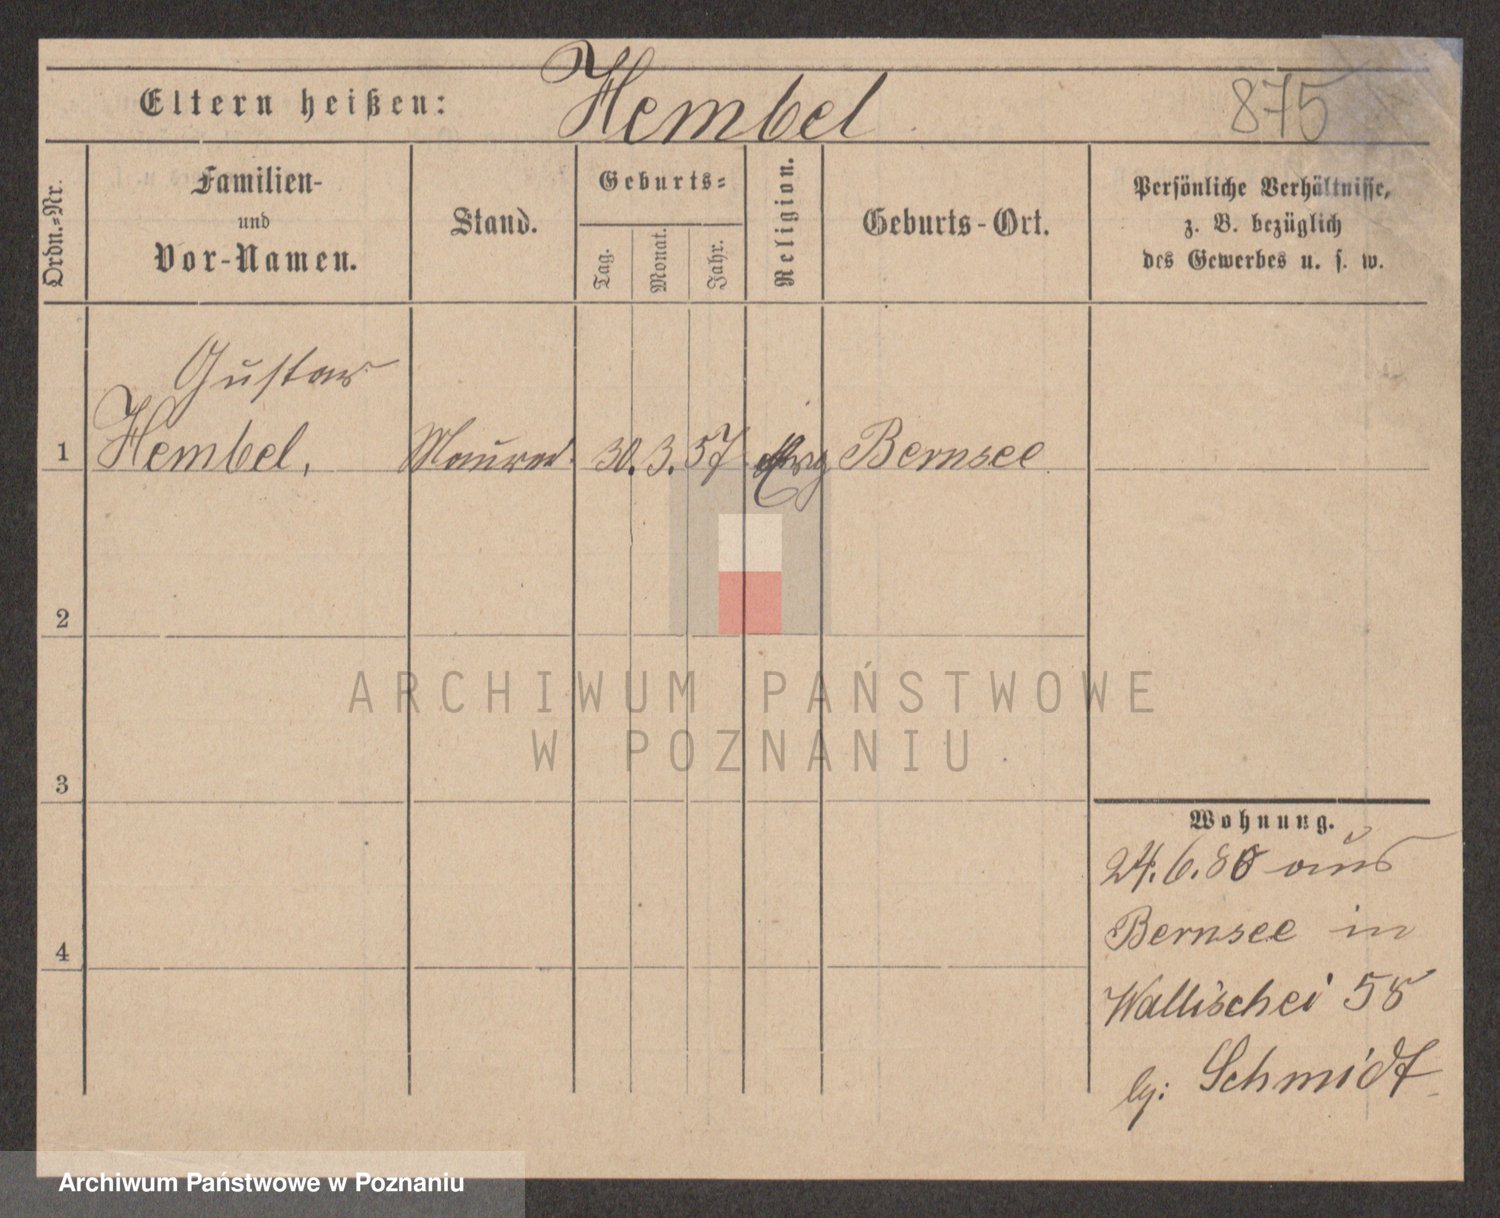 Eltern heißen: Hembel 875
Ordn.=Nr.
Familien-
und
Vor-Namen.
Stand.
Geburts=
Tag.
Monat.
Jahr.
Religion.
Geburts-Ort.
Persönliche Verhältnisse,
z. B. bezüglich
des Gewerbes u. s. w.
Gustav
1 Hembel, Maurer 30. 3. 57 Bernsee
2
3
4
Wohnung.
24. 6. 80 aus
Bernsee in
Wallischei 58
Schmidt
ARCHIWUM PAŃSTWOWE
W POZNANIU
Archiwum Państwowe w Poznaniu